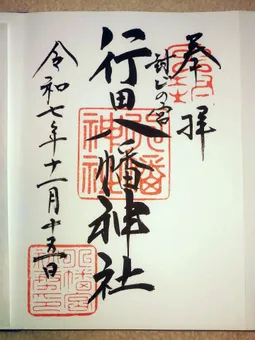 奉拝
封じの宮
行田八幡神社
令和七年十一月十五日